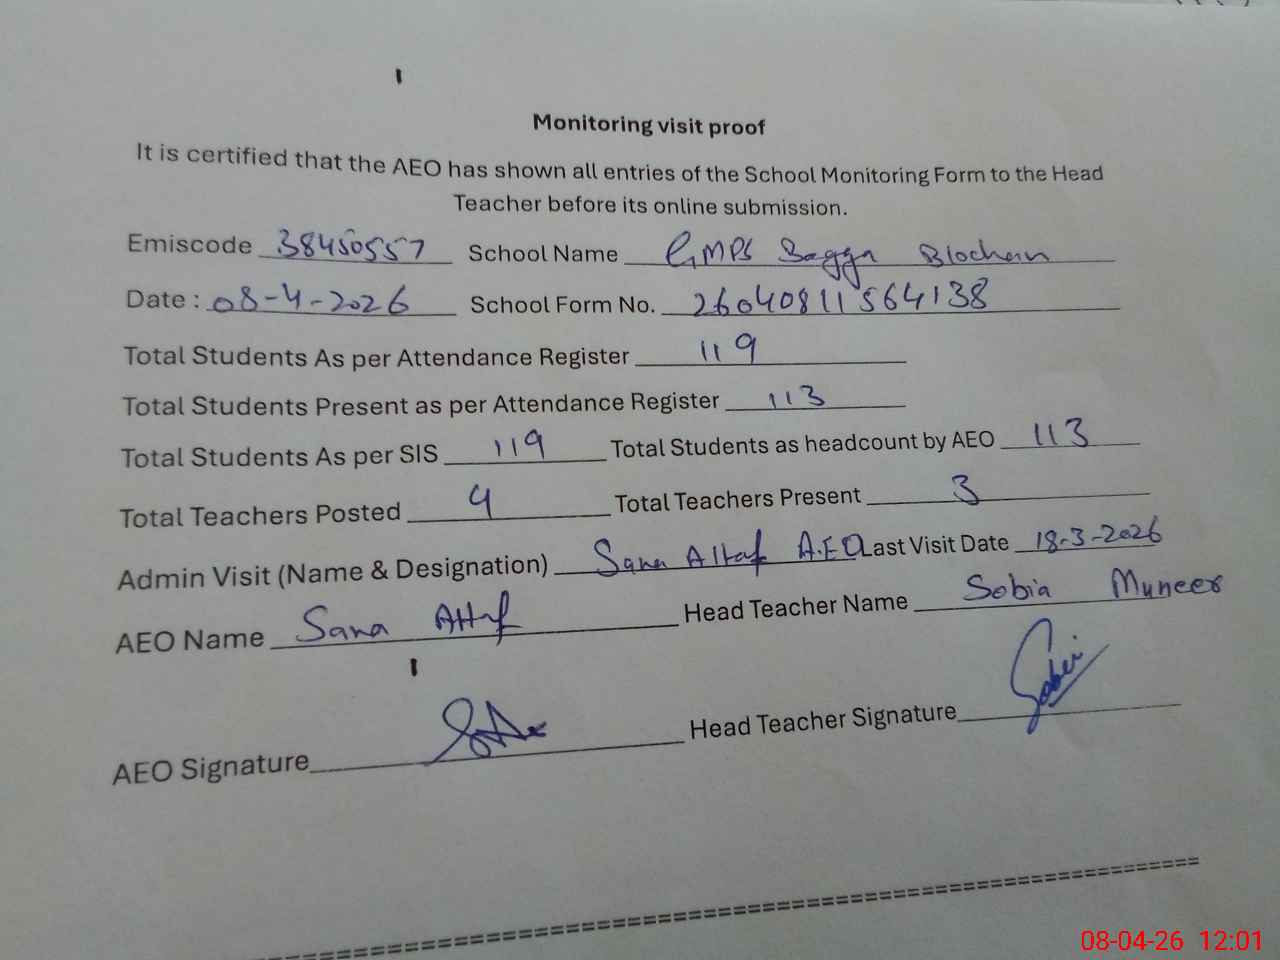 Monitoring visit proof
It is certified that the AEO has shown all entries of the School Monitoring Form to the Head
Teacher before its online submission.
Emiscode 38450557 School Name GMPS Bagga Blochan
Date : 08-4-2026 School Form No. 26040811564138
Total Students As per Attendance Register 119
Total Students Present as per Attendance Register 113
Total Students As per SIS 119 Total Students as headcount by AEO 113
Total Teachers Posted 4 Total Teachers Present 3
Admin Visit (Name & Designation) Sana Altaf A.EO Last Visit Date 18-3-2026
AEO Name Sana Altaf Head Teacher Name Sobia Muneer
AEO Signature Head Teacher Signature
08-04-26 12:01